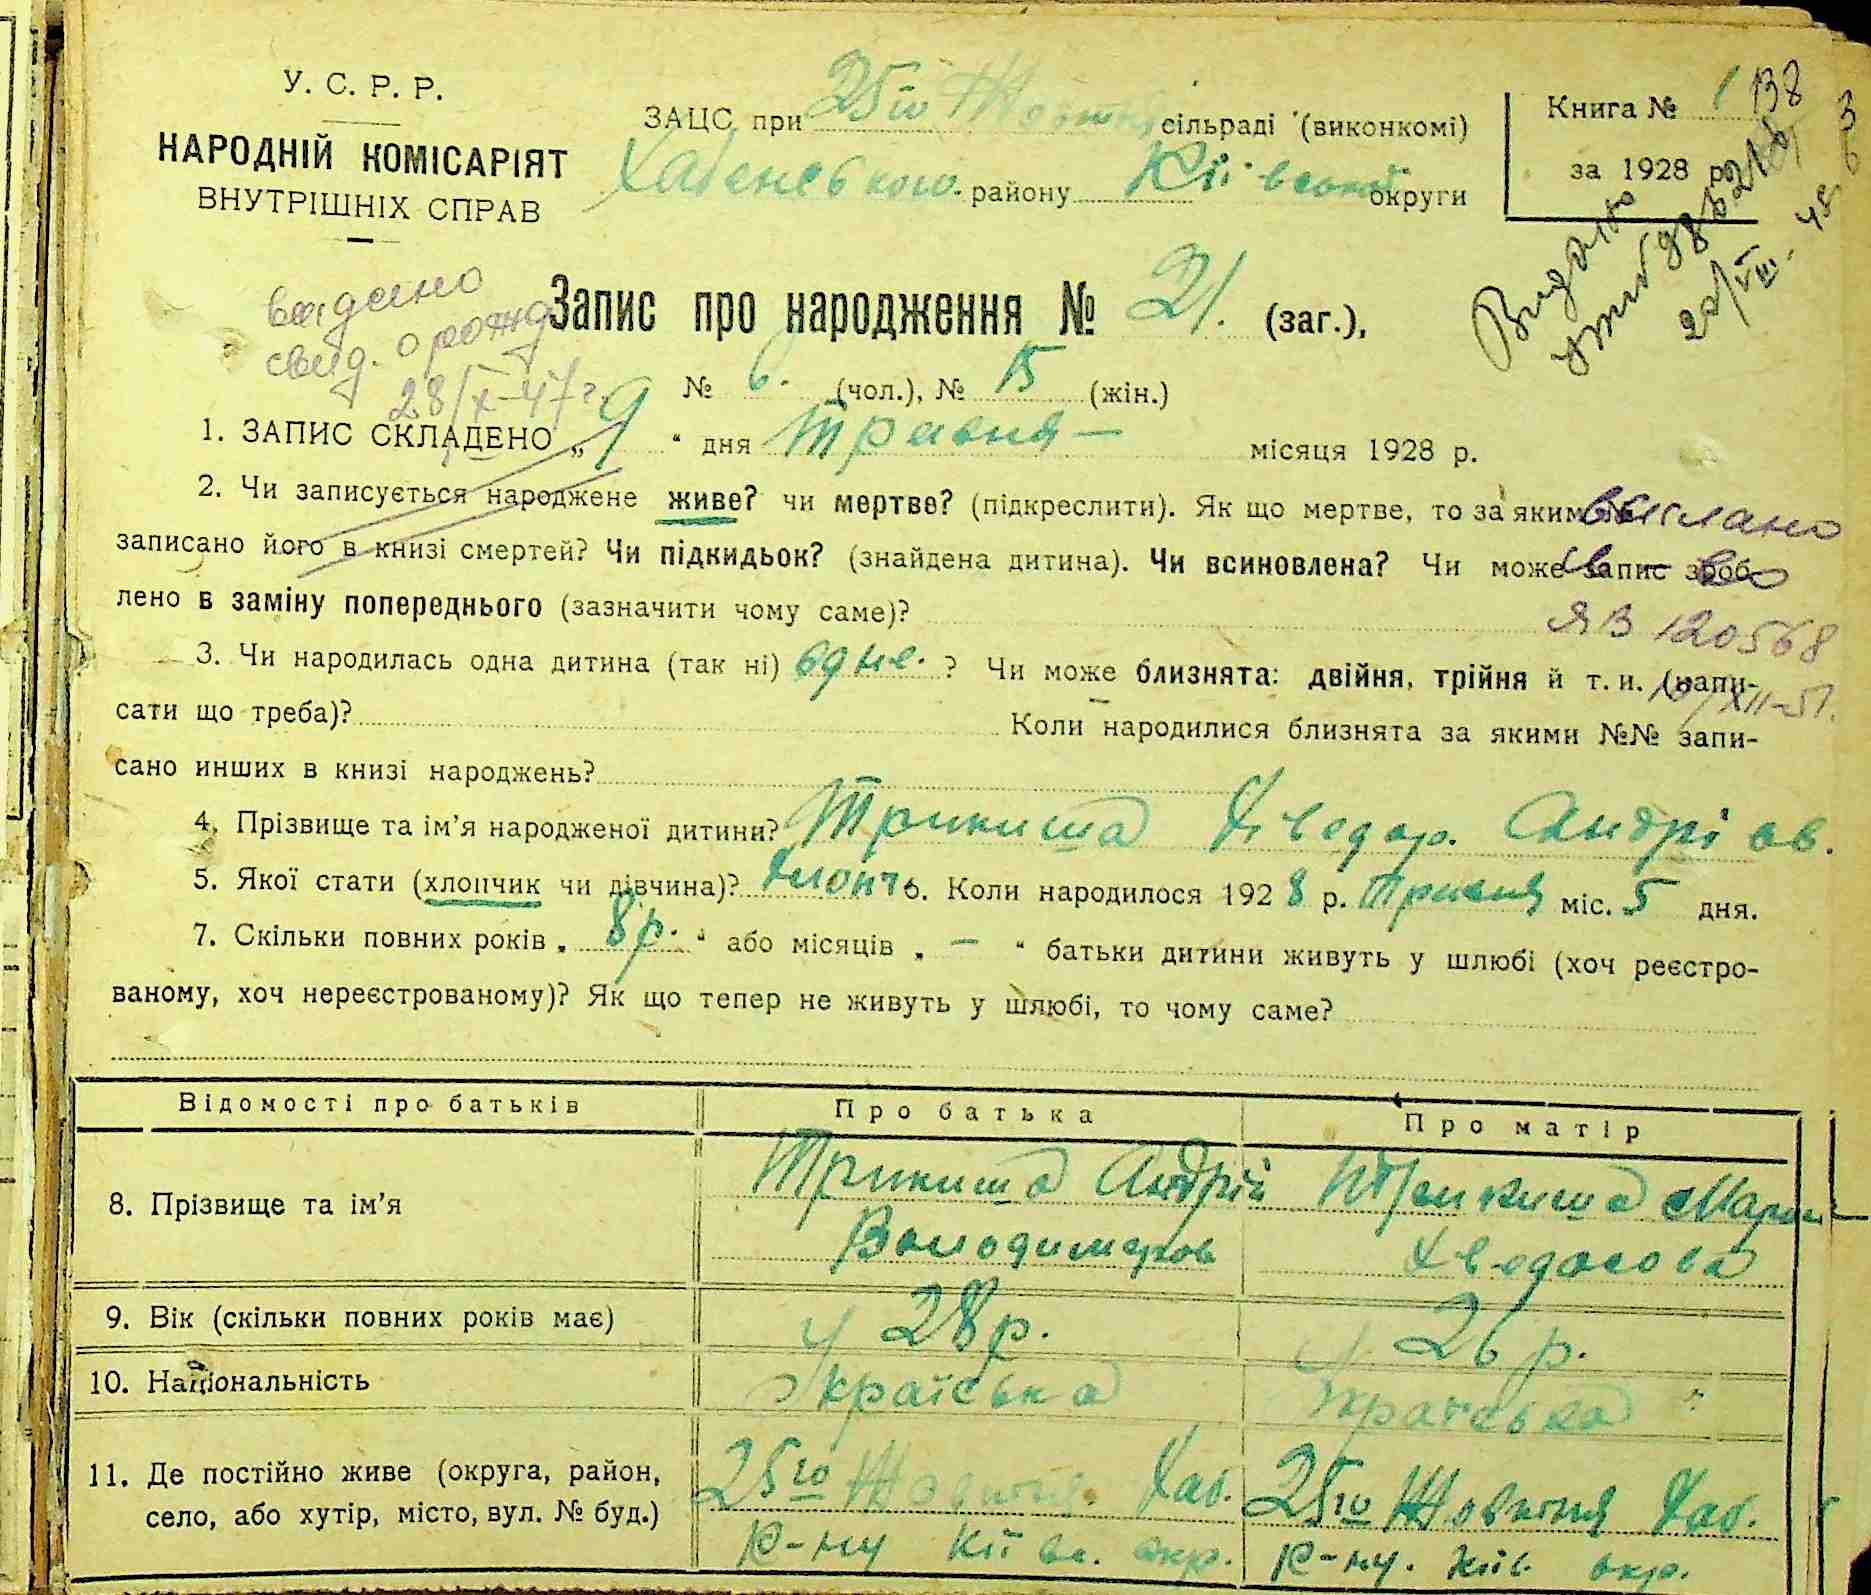 У. С. Р. Р.
НАРОДНІЙ КОМІСАРІЯТ
ВНУТРІШНІХ СПРАВ
ЗАЦС при 25го Жовтня сільраді (виконкомі)
Хабенського району Київської округи
Книга № 1
за 1928 р.
138
Видано
20/VIII-48
видано
свид. о рожд
28/X-47 г.
Запис про народження № 21. (заг.),
№ 6. (чол.), № 15 (жін.)
1. ЗАПИС СКЛАДЕНО „ 9 “ дня Травня — місяця 1928 р.
2. Чи записується народжене живе? чи мертве? (підкреслити). Як що мертве, то за яким №
записано його в книзі смертей? Чи підкидьок? (знайдена дитина). Чи всиновлена? Чи може запис зроб-
лено в заміну попереднього (зазначити чому саме)?
выслано
св-во
ЯВ 120568
10/XII-51.
3. Чи народилась одна дитина (так ні) одне. ? Чи може близнята: двійня, трійня й т. и. (напи-
сати що треба)? Коли народилися близнята за якими №№ запи-
сано инших в книзі народжень?
4. Прізвище та ім’я народженої дитини? Трикиша Хведор. Андріов.
5. Якої стати (хлопчик чи дівчина)? Хлопчь. Коли народилося 1928 р. Травня міс. 5 дня.
7. Скільки повних років „ 8 р. “ або місяців „ — “ батьки дитини живуть у шлюбі (хоч реєстро-
ваному, хоч нереєстрованому)? Як що тепер не живуть у шлюбі, то чому саме?
Відомості про батьків Про батька Про матір
8. Прізвище та ім’я Трикиша Андрій Трикиша Марія
Володимеров Хведосова
9. Вік (скільки повних років має) 28 р. 26 р.
10. Національність Україська Україська
11. Де постійно живе (округа, район, 25го Жовтня Хаб. 25го Жовтня Хаб.
село, або хутір, місто, вул. № буд.) Р-ну Київ. окр. Р-ну. Київ. окр.